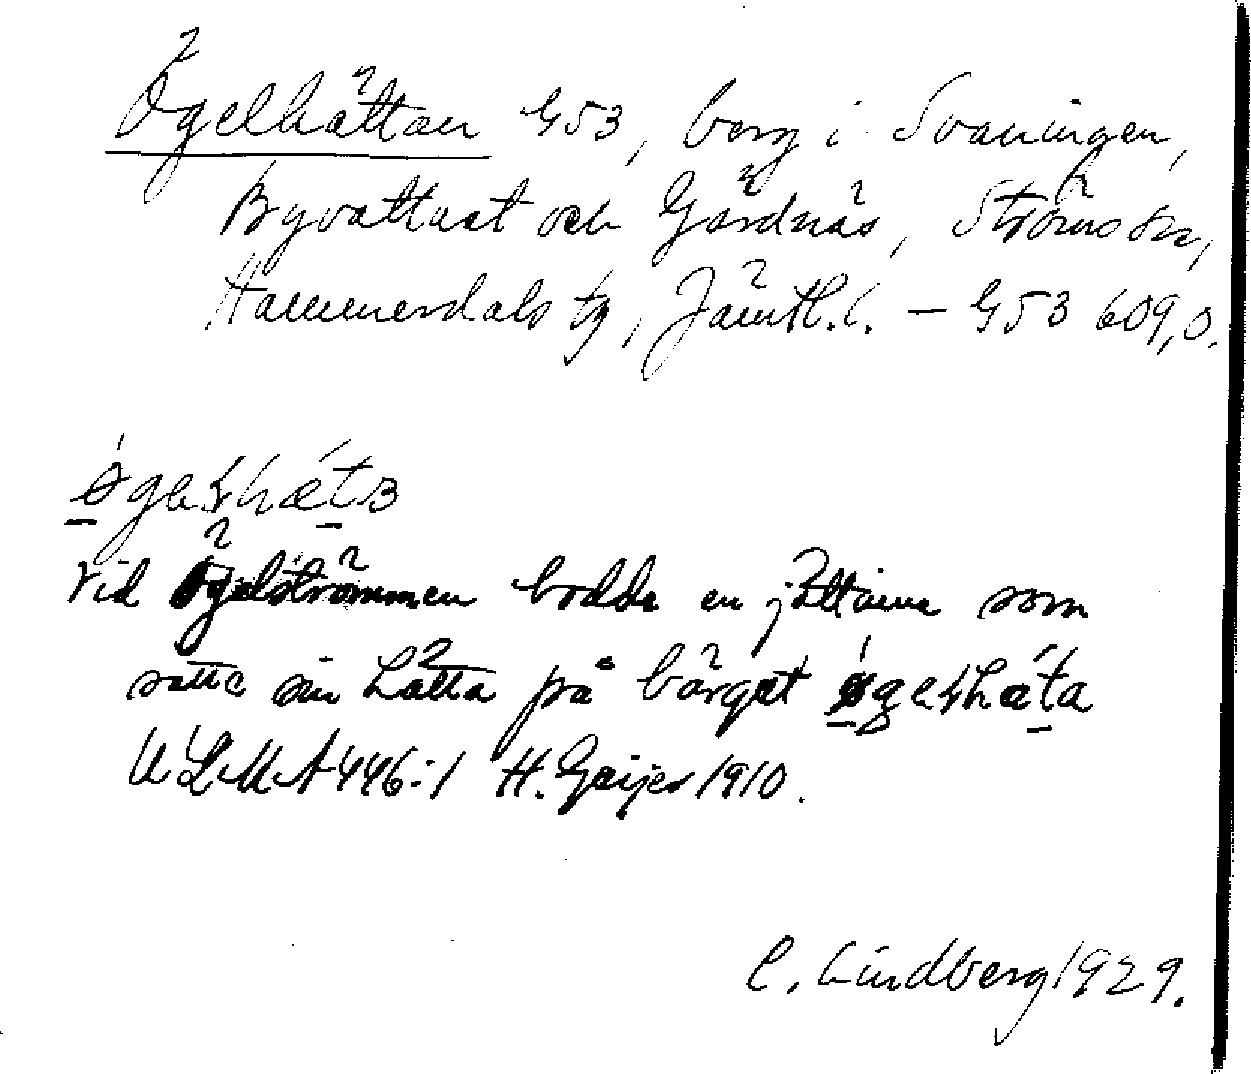 Ögelhättan G53, berg i Svaningen,
Byvattnet och Gärdnäs, Ströms sn,
Hammerdals tg, Jämtl. l. – G53 609,0.
Vid Ögelströmmen bodde en jättinna som
satte sin hätta på bärget
ULMA 446:1 H. Geijer 1910.
C. Lindberg 1929.